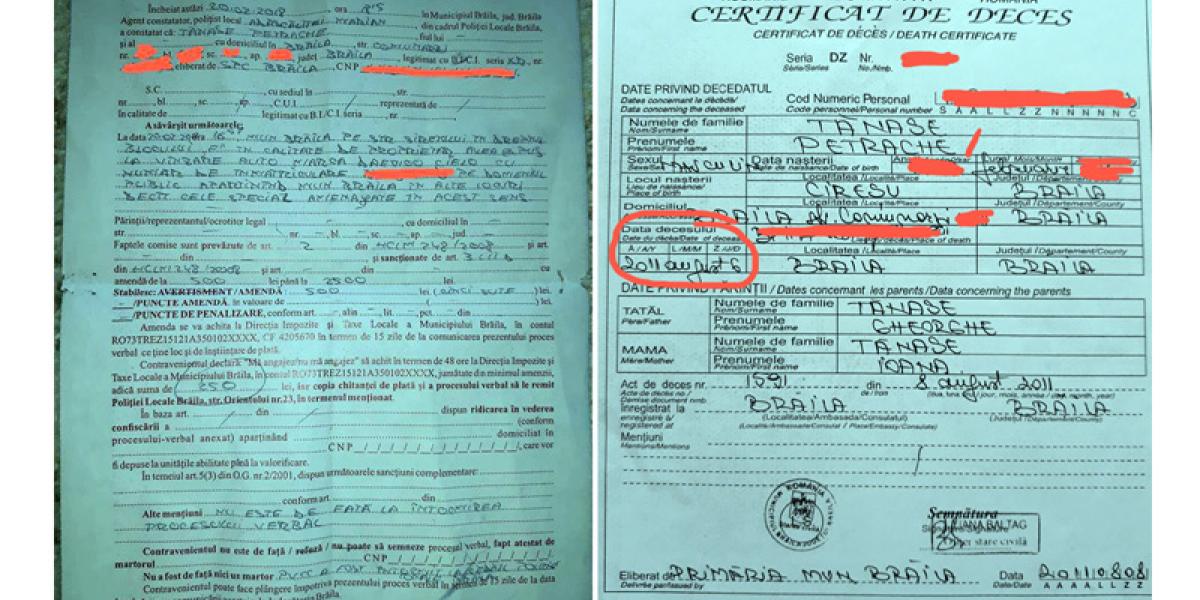 Încheiat astăzi 20.02.2018 ora
în Municipiul Brăila, jud. Brăila
Agent constatator, polițist local
MARIAN
din cadrul Poliției Locale Brăila,
a constatat că: TĂNASE PETRACHE fiul lui
și al cu domiciliul în BRĂILA, str. COMUNARI
nr. sc. ap. județ BRĂILA legitimat cu B.I./C.I. seria XD, nr.
eliberat de SPC BRĂILA, CNP
S.C. , cu sediul în , str.
nr. , bl. , sc. , ap. , C.U.I. , reprezentată de
în calitate de legitimat cu B.I./C.I seria
A săvârșit următoarele:
La data MUN BRĂILA PE STR
BLOCULUI ÎN CALITATE DE PROPRIETAR
LA VÂNZARE AUTO MARCA DAEWOO CIELO CU
NUMĂR DE ÎNMATRICULARE PE DOMENIUL
PUBLIC APARȚINÂND MUN BRĂILA ÎN ALTE LOCURI
DECÂT CELE SPECIAL AMENAJATE ÎN ACEST SENS
Părinții/reprezentantul/ocrotitor legal , cu domiciliul în
str. nr. , bl. , sc. , ap. , județ
Faptele comise sunt prevăzute de art. 2 din HCLM 248/2008 și art.
din și sancționate de art. 3
din HCLM 248/2008 și art din cu
amendă de la 500 lei până la 2500 lei.
Stabilesc: AVERTISMENT/AMENDĂ: 500 lei (CINCI SUTE) lei.
/PUNCTE AMENDĂ, în valoare de lei ( ) lei.
/PUNCTE DE PENALIZARE, conform art. alin , lit. , pct. din
Amenda se va achita la Direcția Impozite și Taxe Locale a Municipiului Brăila, în contul
RO73TREZ15121A350102XXXX, CF 4205670 în termen de 15 zile de la comunicarea prezentului proces
verbal ce ține loc și de înștiințare de plată.
Contravenientul declară: "Mă angajez/nu mă angajez" să achit în termen de 48 ore la Direcția Impozite și
Taxe Locale a Municipiului Brăila, în contul RO73TREZ15121A350102XXXX, jumătate din minimul amenzii,
adică suma de ( 250 ) lei, iar copia chitanței de plată și a procesului verbal să le remit
Poliției Locale Brăila, str. Orientului nr.23, în termenul menționat.
În baza art. / din / dispun ridicarea în vederea
confiscării a (conform
procesului-verbal anexat) aparținând domiciliat în
CNP , care vor
fi depuse la unitățile abilitate până la valorificare.
În temeiul art.5(3) din O.G. nr.2/2001, dispun următoarele sancțiuni complementare:
conform art. din
Alte mențiuni NU ESTE DE FAȚĂ LA ÎNTOCMIREA
PROCESULUI VERBAL
Contravenientul nu este de față / refuză / nu poate să semneze procesul verbal, fapt atestat de
martorul CNP
Nu a fost de față nici un martor
Contravenientul poate face plângere împotriva prezentului proces verbal în termen de 15 zile de la data
CERTIFICAT DE DECES
CERTIFICAT DE DÉCÈS / DEATH CERTIFICATE
Seria DZ Nr.
Série/Series No/Numb.
DATE PRIVIND DECEDATUL
Dates concernant le décédé/
Data concerning the deceased
Cod Numeric Personal
Code personnel/Personal number S A A L L Z Z N N N N N C
Numele de familie TĂNASE
Nom/Surname
Prenumele PETRACHE
Prénom/First name
Sexul Data nașterii februarie
Locul nașterii Localitatea/Localité/Place Județul/Département/County
Lieu de naissance/
Place of birth CIREȘU BRĂILA
Domiciliul Localitatea/Localité/Place Județul/Département/County
BRĂILA Al. Comunari BRĂILA
Data decesului
Date du décès/Date of decease
A/A/Y L/M/M Z/J/D Localitatea/Localité/Place Județul/Département/County
2011 august 6 BRĂILA BRĂILA
DATE PRIVIND PĂRINȚII / Dates concernant les parents / Data concerning the parents
TATĂL Numele de familie TĂNASE
Père/Father Nom/Surname
Prenumele GHEORGHE
Prénom/First name
MAMA Numele de familie TĂNASE
Mère/Mother Nom/Surname
Prenumele IOANA
Prénom/First name
Act de deces nr. 1591 din 8 august 2011
Acte de décès no/
Înregistrat la BRĂILA BRĂILA
enregistré à/
registered at
(Localitatea/Ambasada/Consulatul) (Județul)
(Localité/Ambassade/Consulat / Place/Embassy/Consulate)
Mențiuni
Mentions/Mentions
ROMÂNIA
Semnătura
LIANA BALTAG
stare civilă
Eliberat de PRIMĂRIA MUN BRĂILA Data 20110808
Délivré par/Issued by Date/Date A A A A L L Z Z